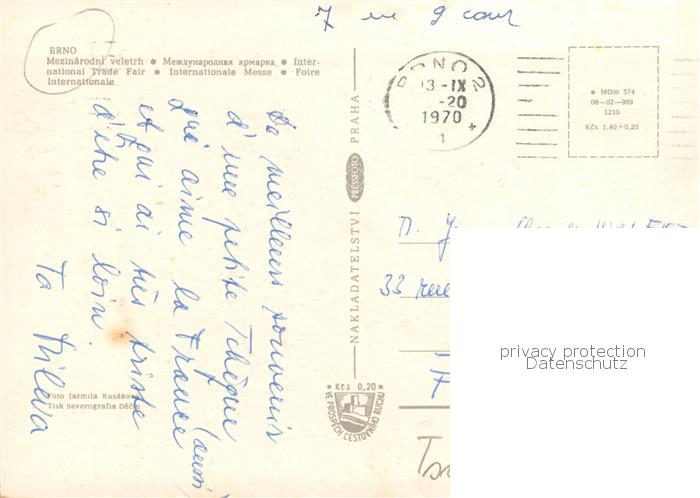 7 me 9 cour
BRNO
Mezinárodní veletrh ● Международная ярмарка ● Inter-
national Trade Fair ● Internationale Messe ● Foire
Internationale
BRNO 2
13-IX
-20
1970
1
● MOm 574
08-02-989
1210
Kčs 1,40+0,20
De meilleurs souvenirs
d'une petite Tchèque
qui aime la France (aussi)
et qui ai très triste
d'être si loin.
Ta Milova
NAKLADATELSTVÍ PRESSFOTO PRAHA
M.
33 rue
privacy protection
Datenschutz
Kčs 0,20
VE PROSPĚCH CESTOVNÍHO RUCHU
Foto Jarmila Kusáková
Tisk Severografia Děčín